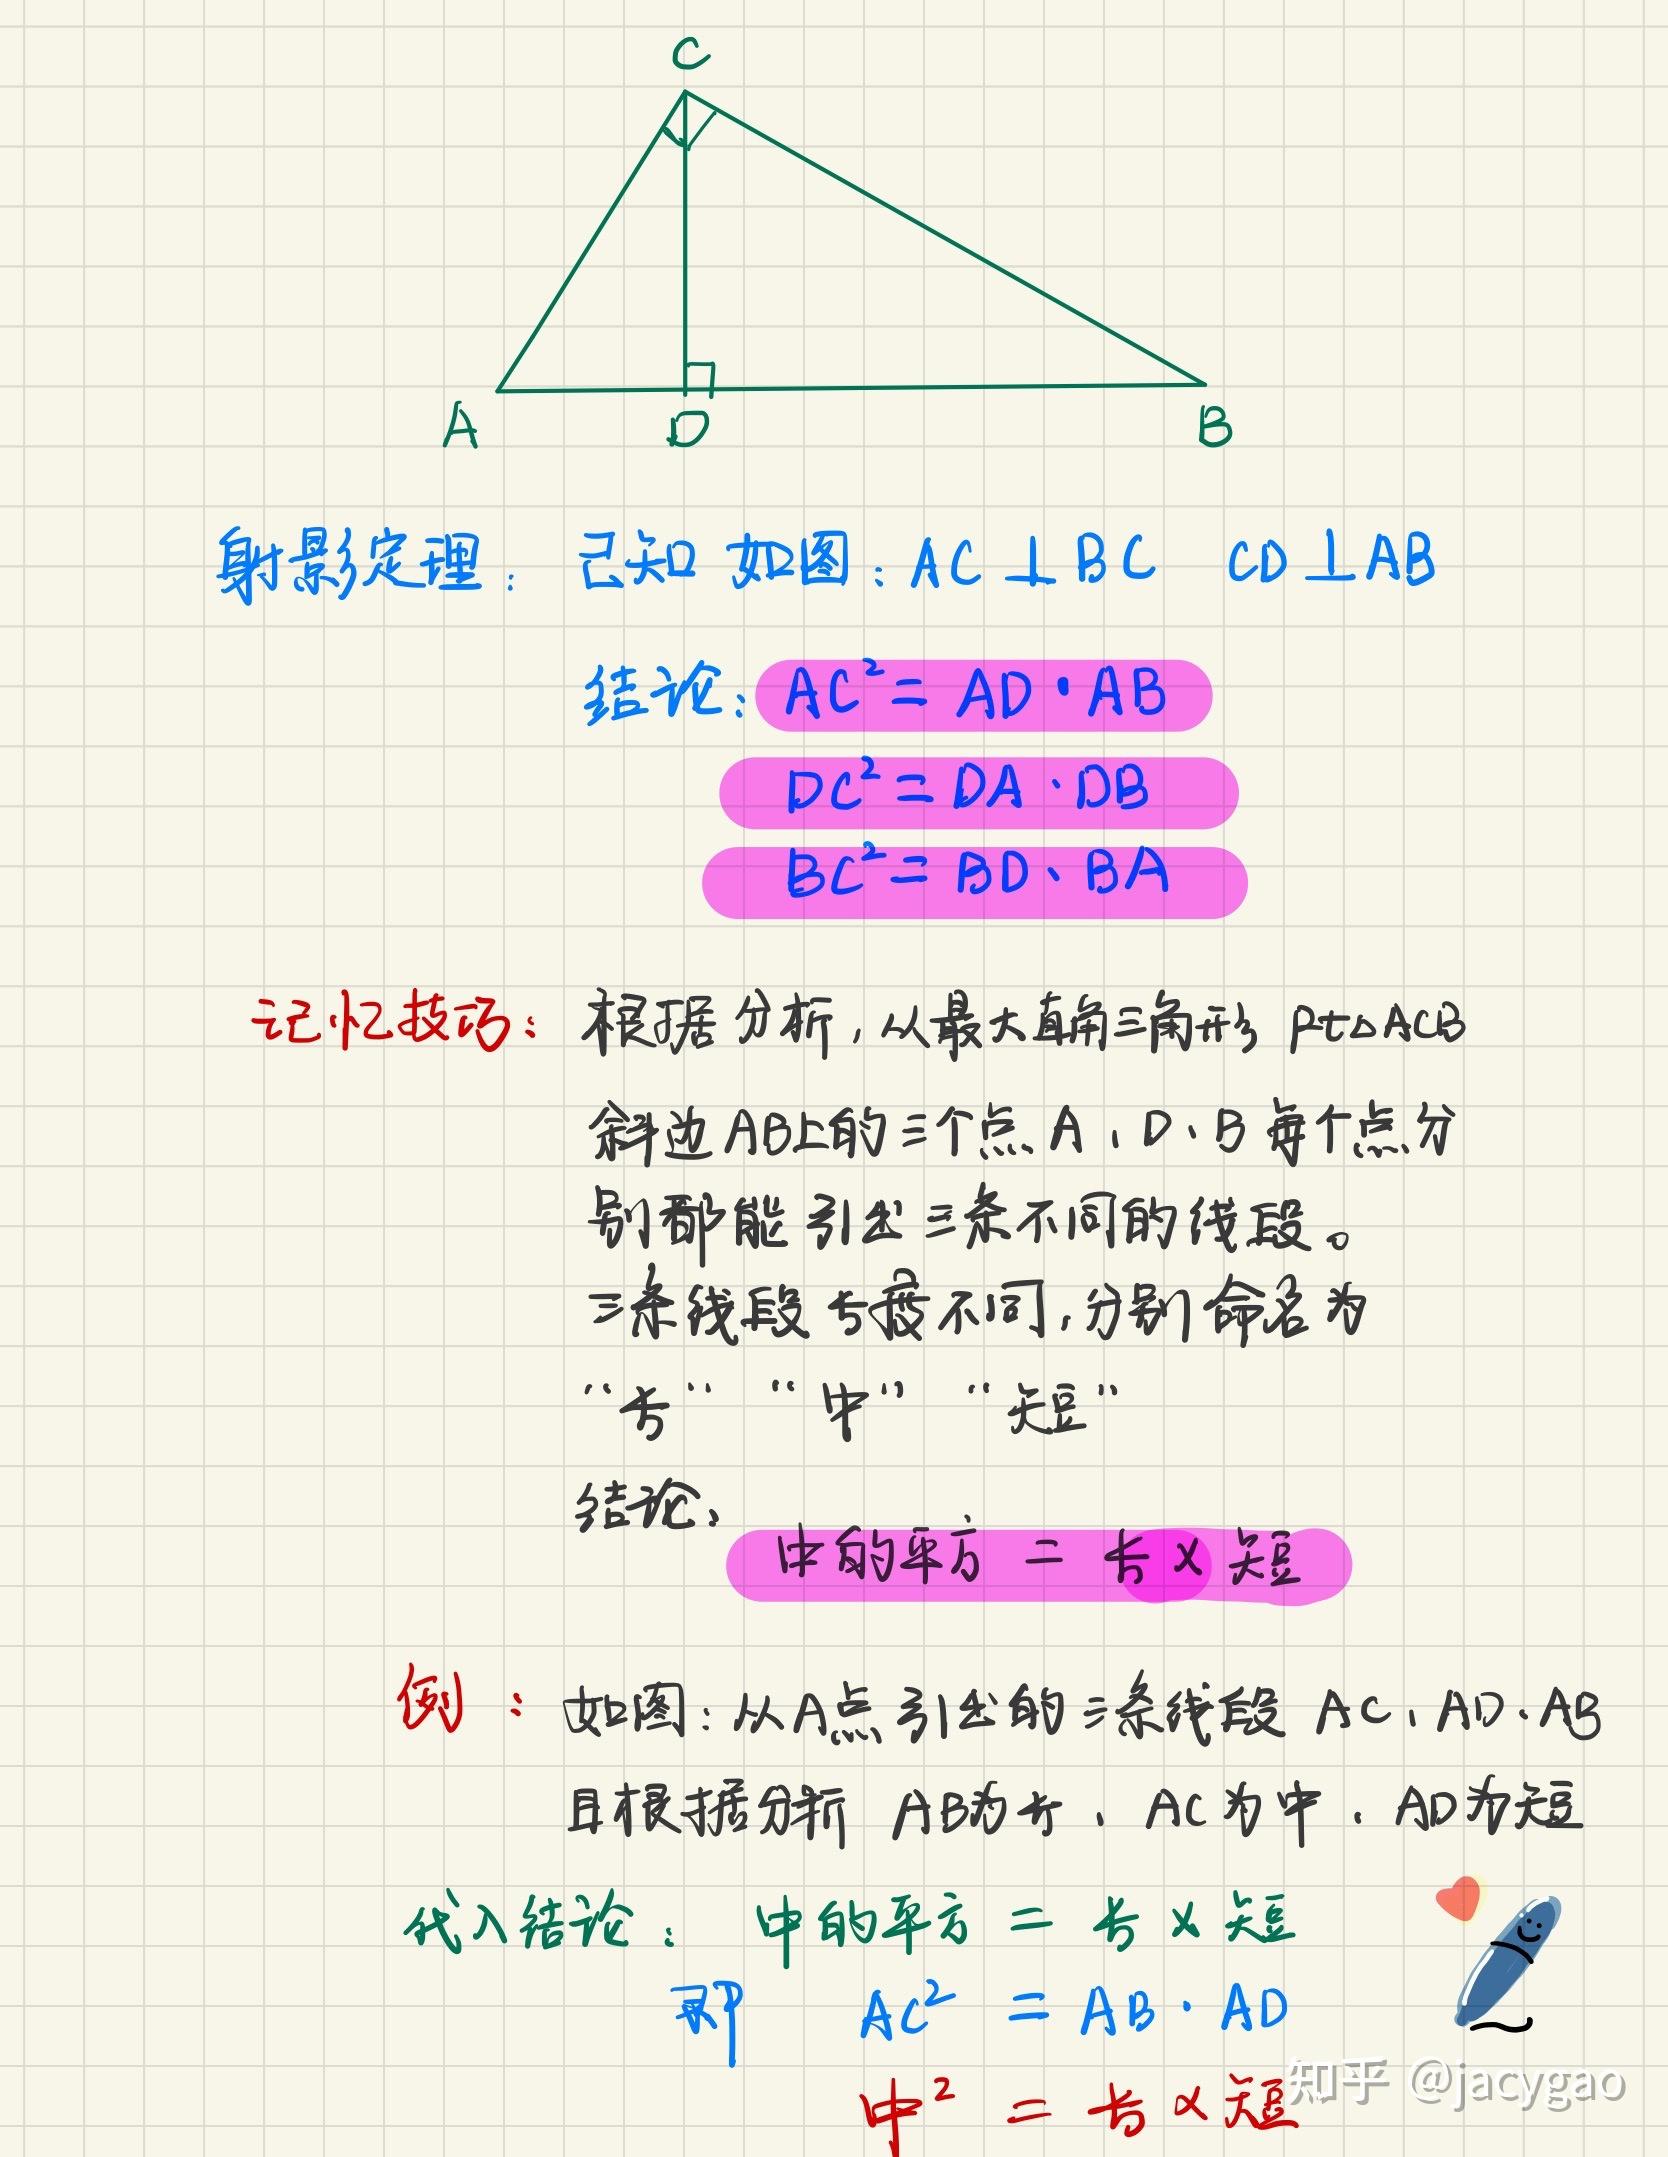 C
A D B
射影定理: 已知 如图: AC⊥BC CD⊥AB
结论: AC²=AD·AB
DC²=DA·DB
BC²=BD、BA
记忆技巧: 根据分析, 从最大直角三角形 Rt△ACB
斜边AB上的三个点A、D、B每个点分
别都能引出三条不同的线段。
三条线段长度不同, 分别命名为
“长” “中” “短”
结论:
中的平方 = 长×短
例: 如图: 从A点引出的三条线段 AC、AD、AB
且根据分析 AB为长、AC为中、AD为短
代入结论: 中的平方 = 长×短
即 AC² = AB·AD
中² = 长×短
知乎 @jacygao